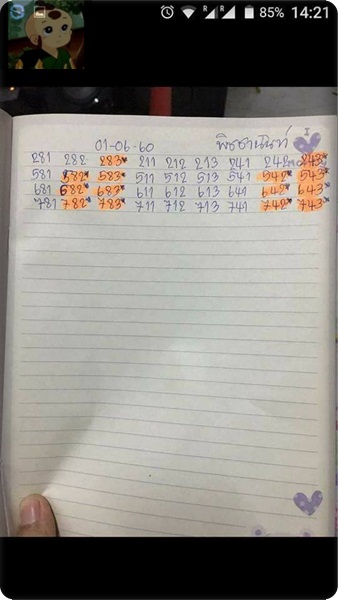 85% 14:21
01-06-60 พิชานันท์
281 282 283* 211 212 213 241 242* 243*
581 582* 583* 511 512 513 541 542* 543*
681 682* 683* 611 612 613 641 642* 643*
781 782* 783* 711 712 713 741 742* 743*